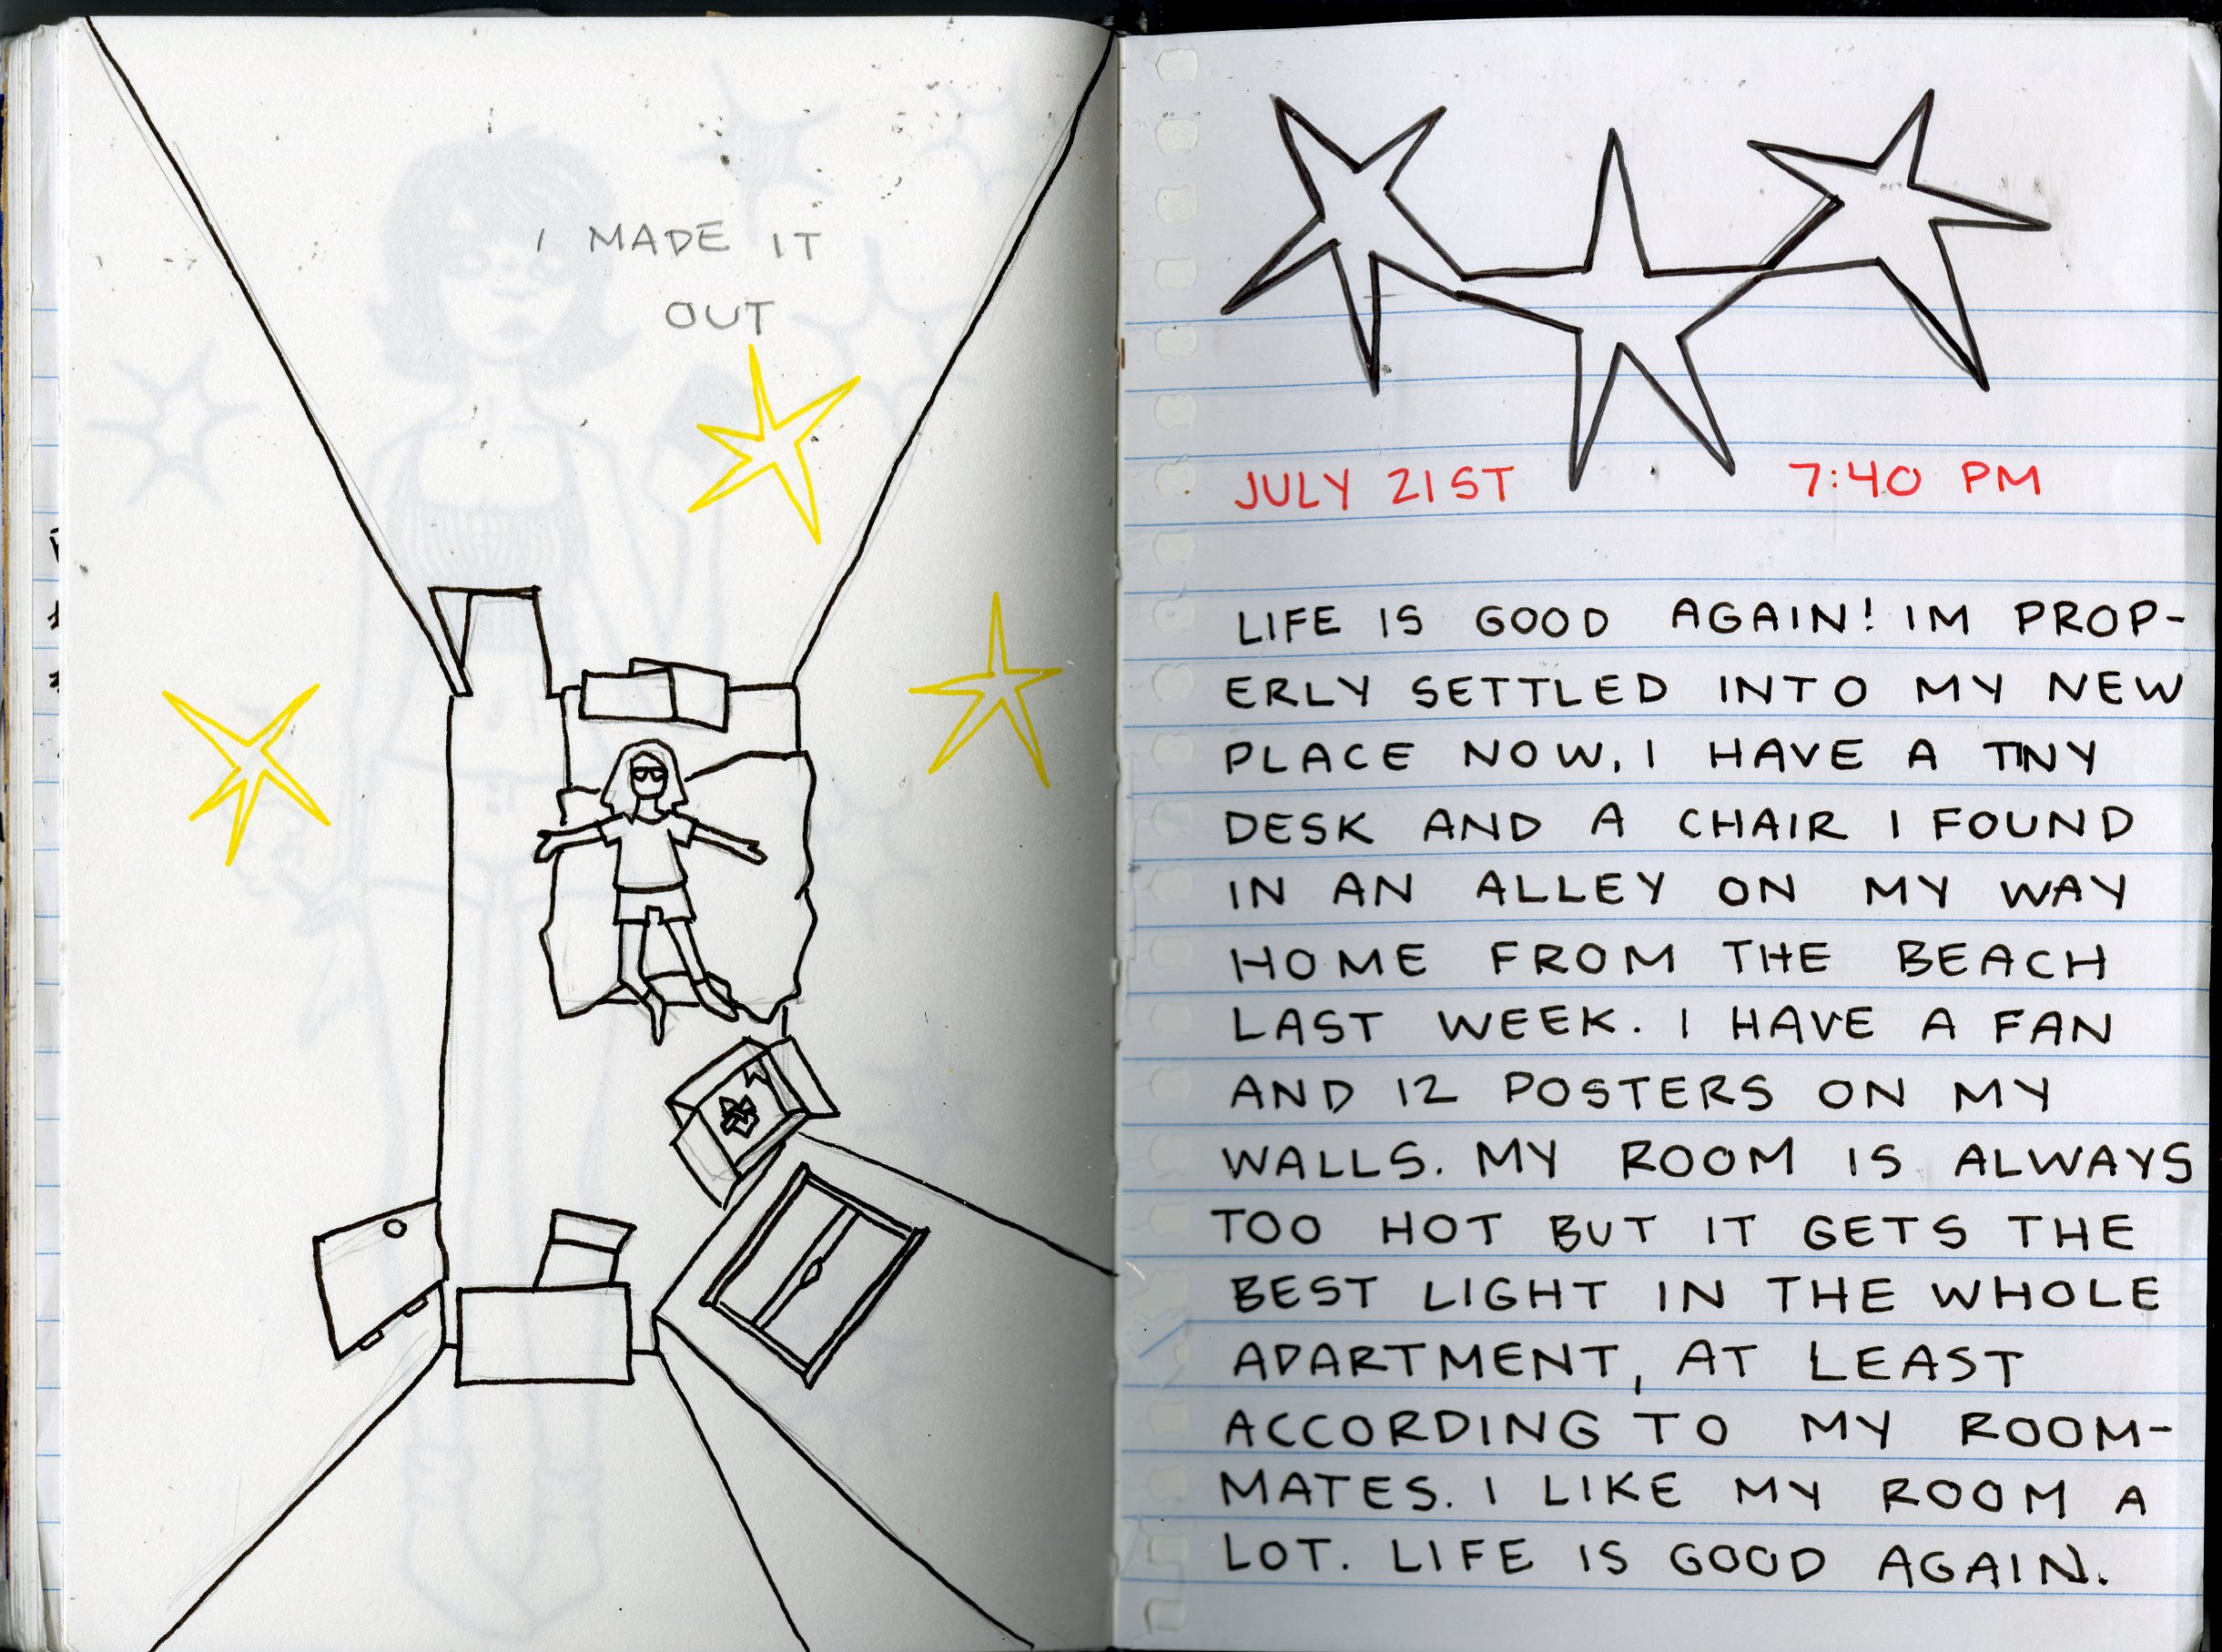 I MADE IT
OUT
JULY 21ST 7:40 PM
LIFE IS GOOD AGAIN! IM PROP-
ERLY SETTLED INTO MY NEW
PLACE NOW. I HAVE A TINY
DESK AND A CHAIR I FOUND
IN AN ALLEY ON MY WAY
HOME FROM THE BEACH
LAST WEEK. I HAVE A FAN
AND 12 POSTERS ON MY
WALLS. MY ROOM IS ALWAYS
TOO HOT BUT IT GETS THE
BEST LIGHT IN THE WHOLE
APARTMENT, AT LEAST
ACCORDING TO MY ROOM-
MATES. I LIKE MY ROOM A
LOT. LIFE IS GOOD AGAIN.